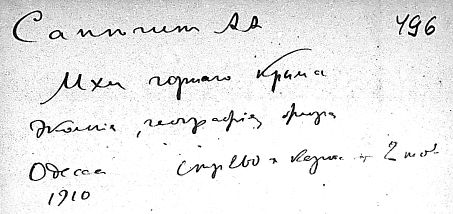 Сапѣгин АА 496
Мхи горнаго Крыма
Экологія, географія, флора
Одесса
1910